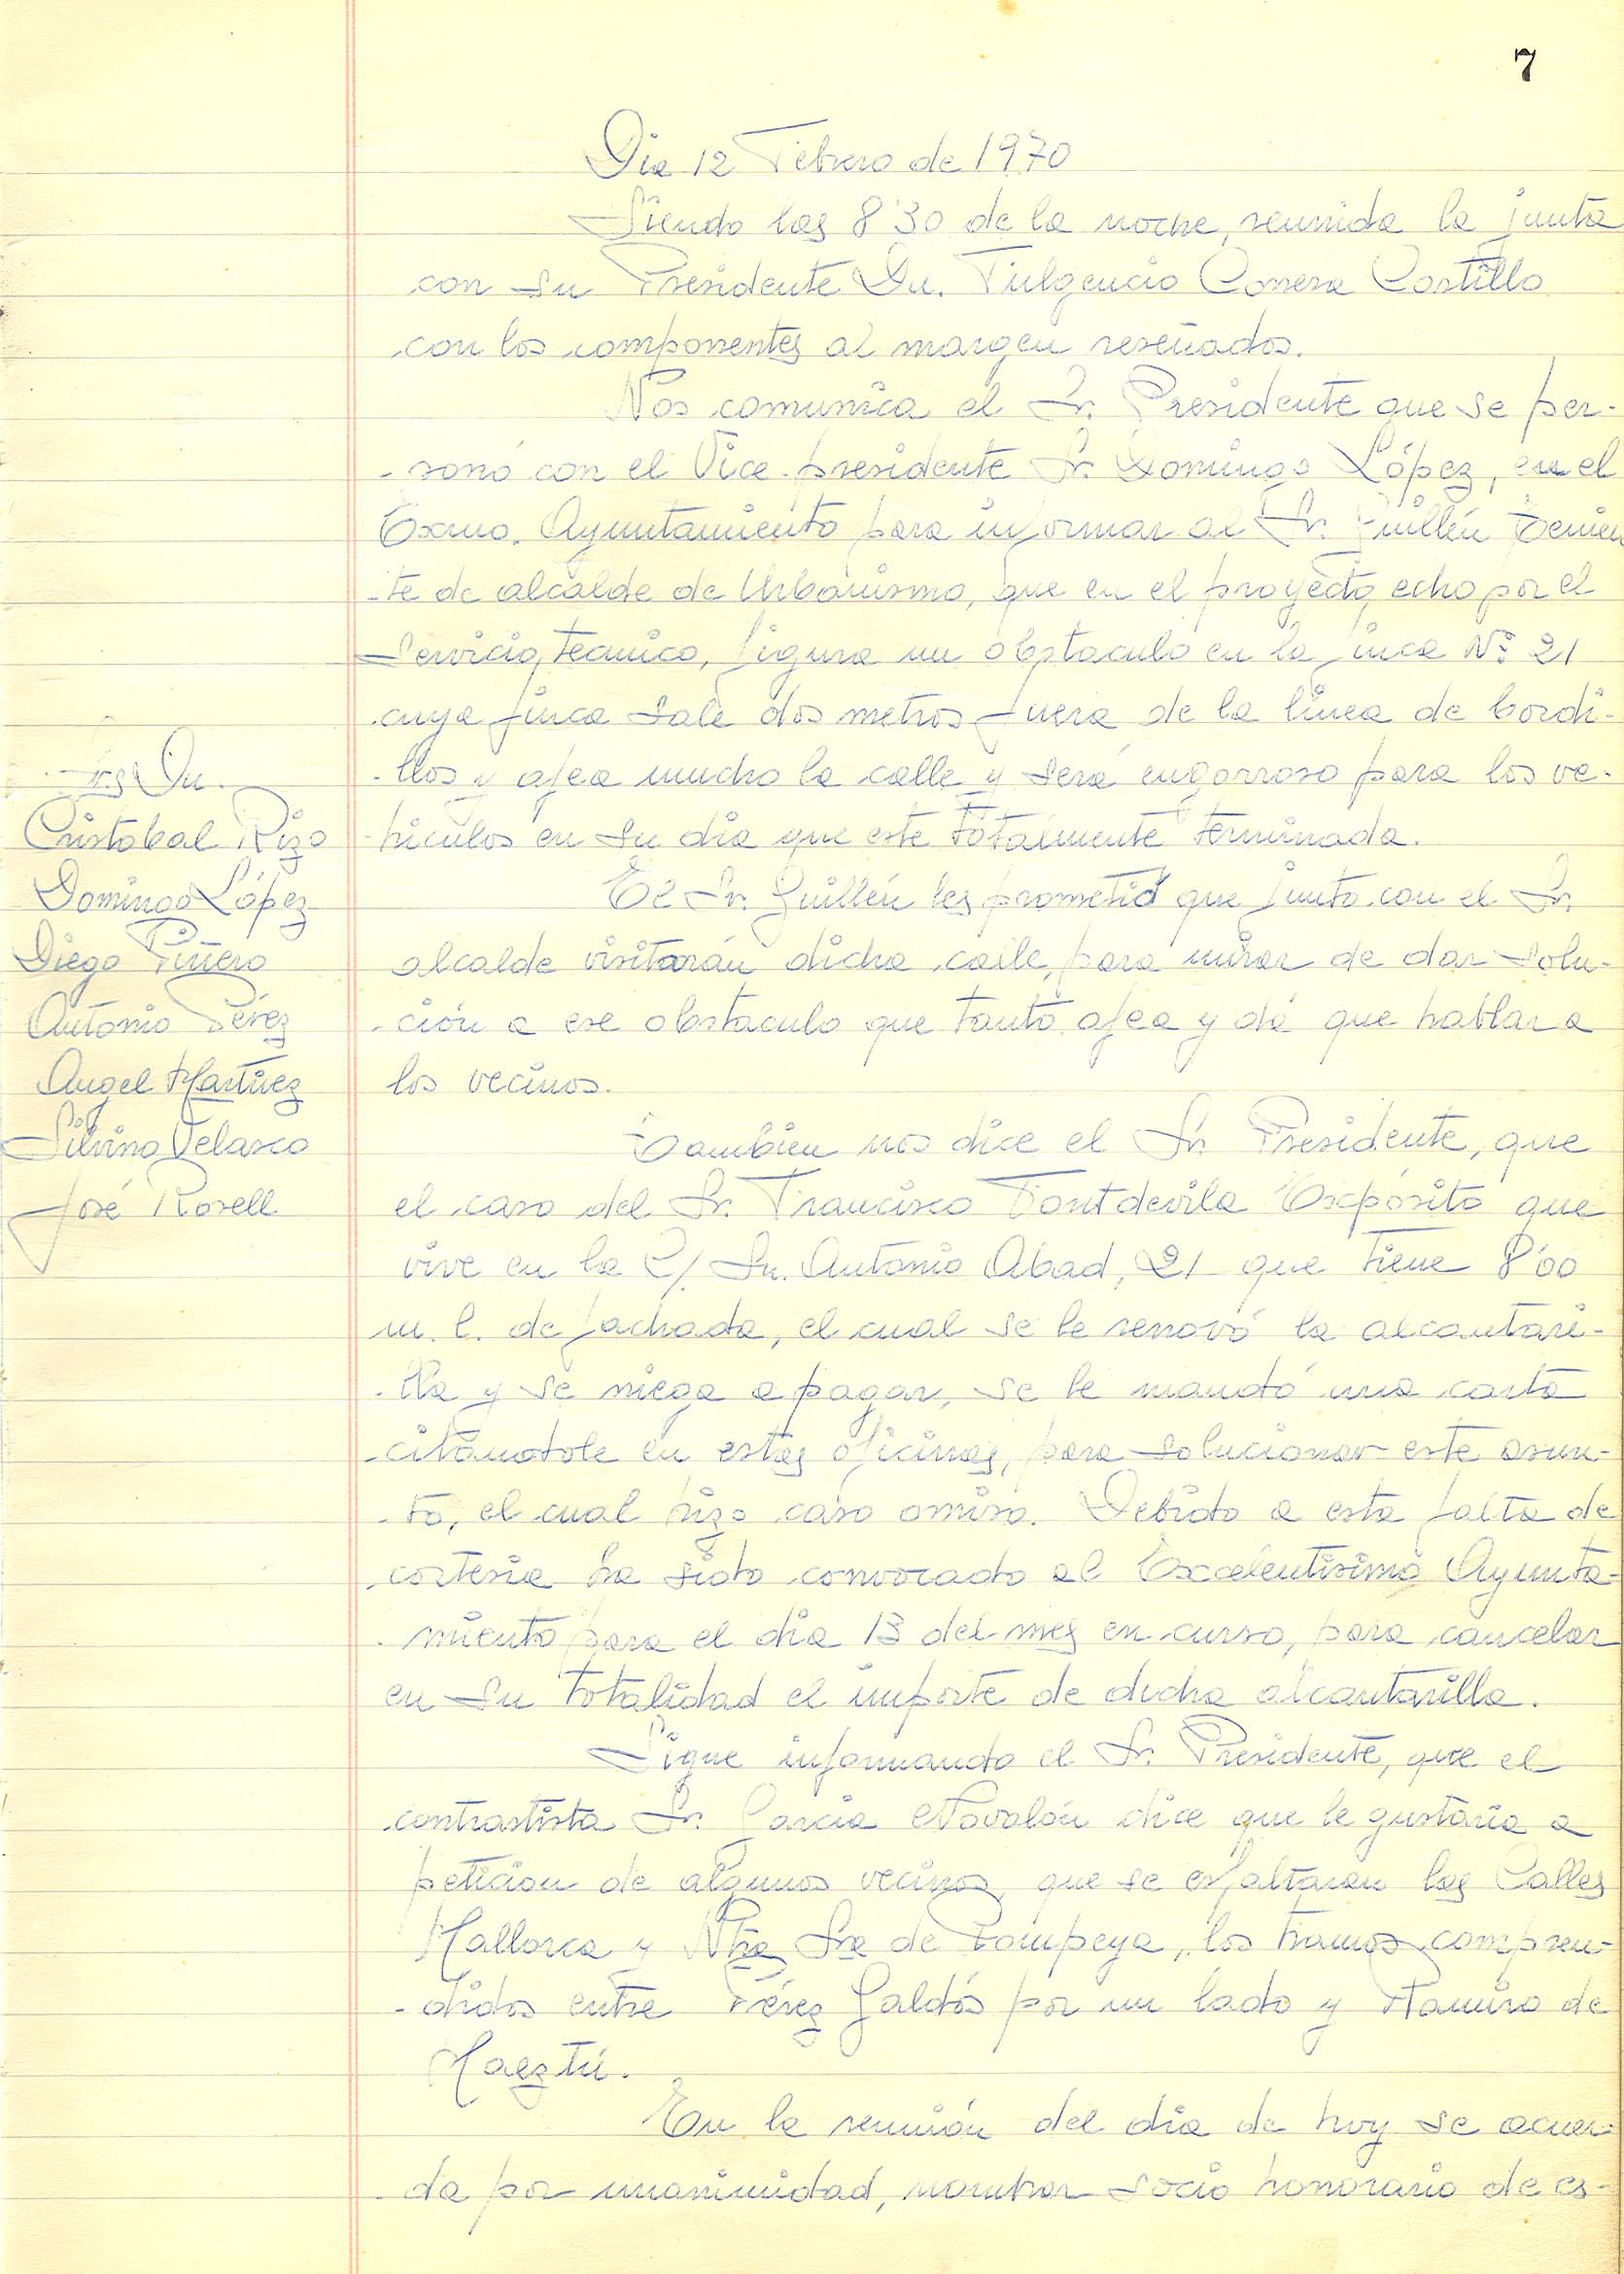 7
Dia 12 Febrero de 1970
Siendo las 8'30 de la noche, reunida la junta
con su Presidente Dn. Fulgencio Conesa Castillo
con los componentes al margen reseñados.
Nos comunica el Sr. Presidente que se per-
-sonó con el Vice-presidente Sr. Domingo López, en el
Exmo. Ayuntamiento para informar al Sr. Guillén Tenien
-te de alcalde de Urbanismo, que en el proyecto echo por el
Servicio Tecnico, figura un obstaculo en la finca Nº 21
cuya finca sale dos metros fuera de la linea de bordi-
-llos y afea mucho la calle y será engorroso para los ve-
-hiculos en su dia que este totalmente terminada.
El Sr. Guillén les prometió que junto con el Sr.
alcalde visitarán dicha calle, para mirar de dar solu-
-ción a ese obstaculo que tanto afea y dá que hablar a
los vecinos.
Tambien nos dice el Sr. Presidente, que
el caso del Sr. Francisco Fontdevila Expósito que
vive en la C/. Sn. Antonio Abad, 21 que tiene 8'00
m. l. de fachada, el cual se le renovó la alcantari-
-lla y se niega a pagar, se le mandó una carta
citandole en estas oficinas, para solucionar este asun-
-to, el cual hizo caso omiso. Debido a esta falta de
cortesia ha sido convocado al Excelentisimo Ayunta-
-miento para el dia 13 del mes en curso, para cancelar
en su totalidad el importe de dicha alcantarilla.
Sigue informando el Sr. Presidente, que el
contrastista Sr. Garcia Navalón dice que le gustaria a
petición de algunos vecinos, que se esfaltaran las Calles
Mallorca y Ntra Sra de Pompeya, los tramos compren-
-didos entre Pérez Galdós por un lado y Ramiro de
Maeztú.
En la reunión del dia de hoy se acuer-
-da por unanimidad, nombrar socio honorario de es-
Srs Dn.
Cristobal Rizo
Domingo López
Diego Piñero
Antonio Pérez
Angel Martinez
Silvino Velasco
José Rosell